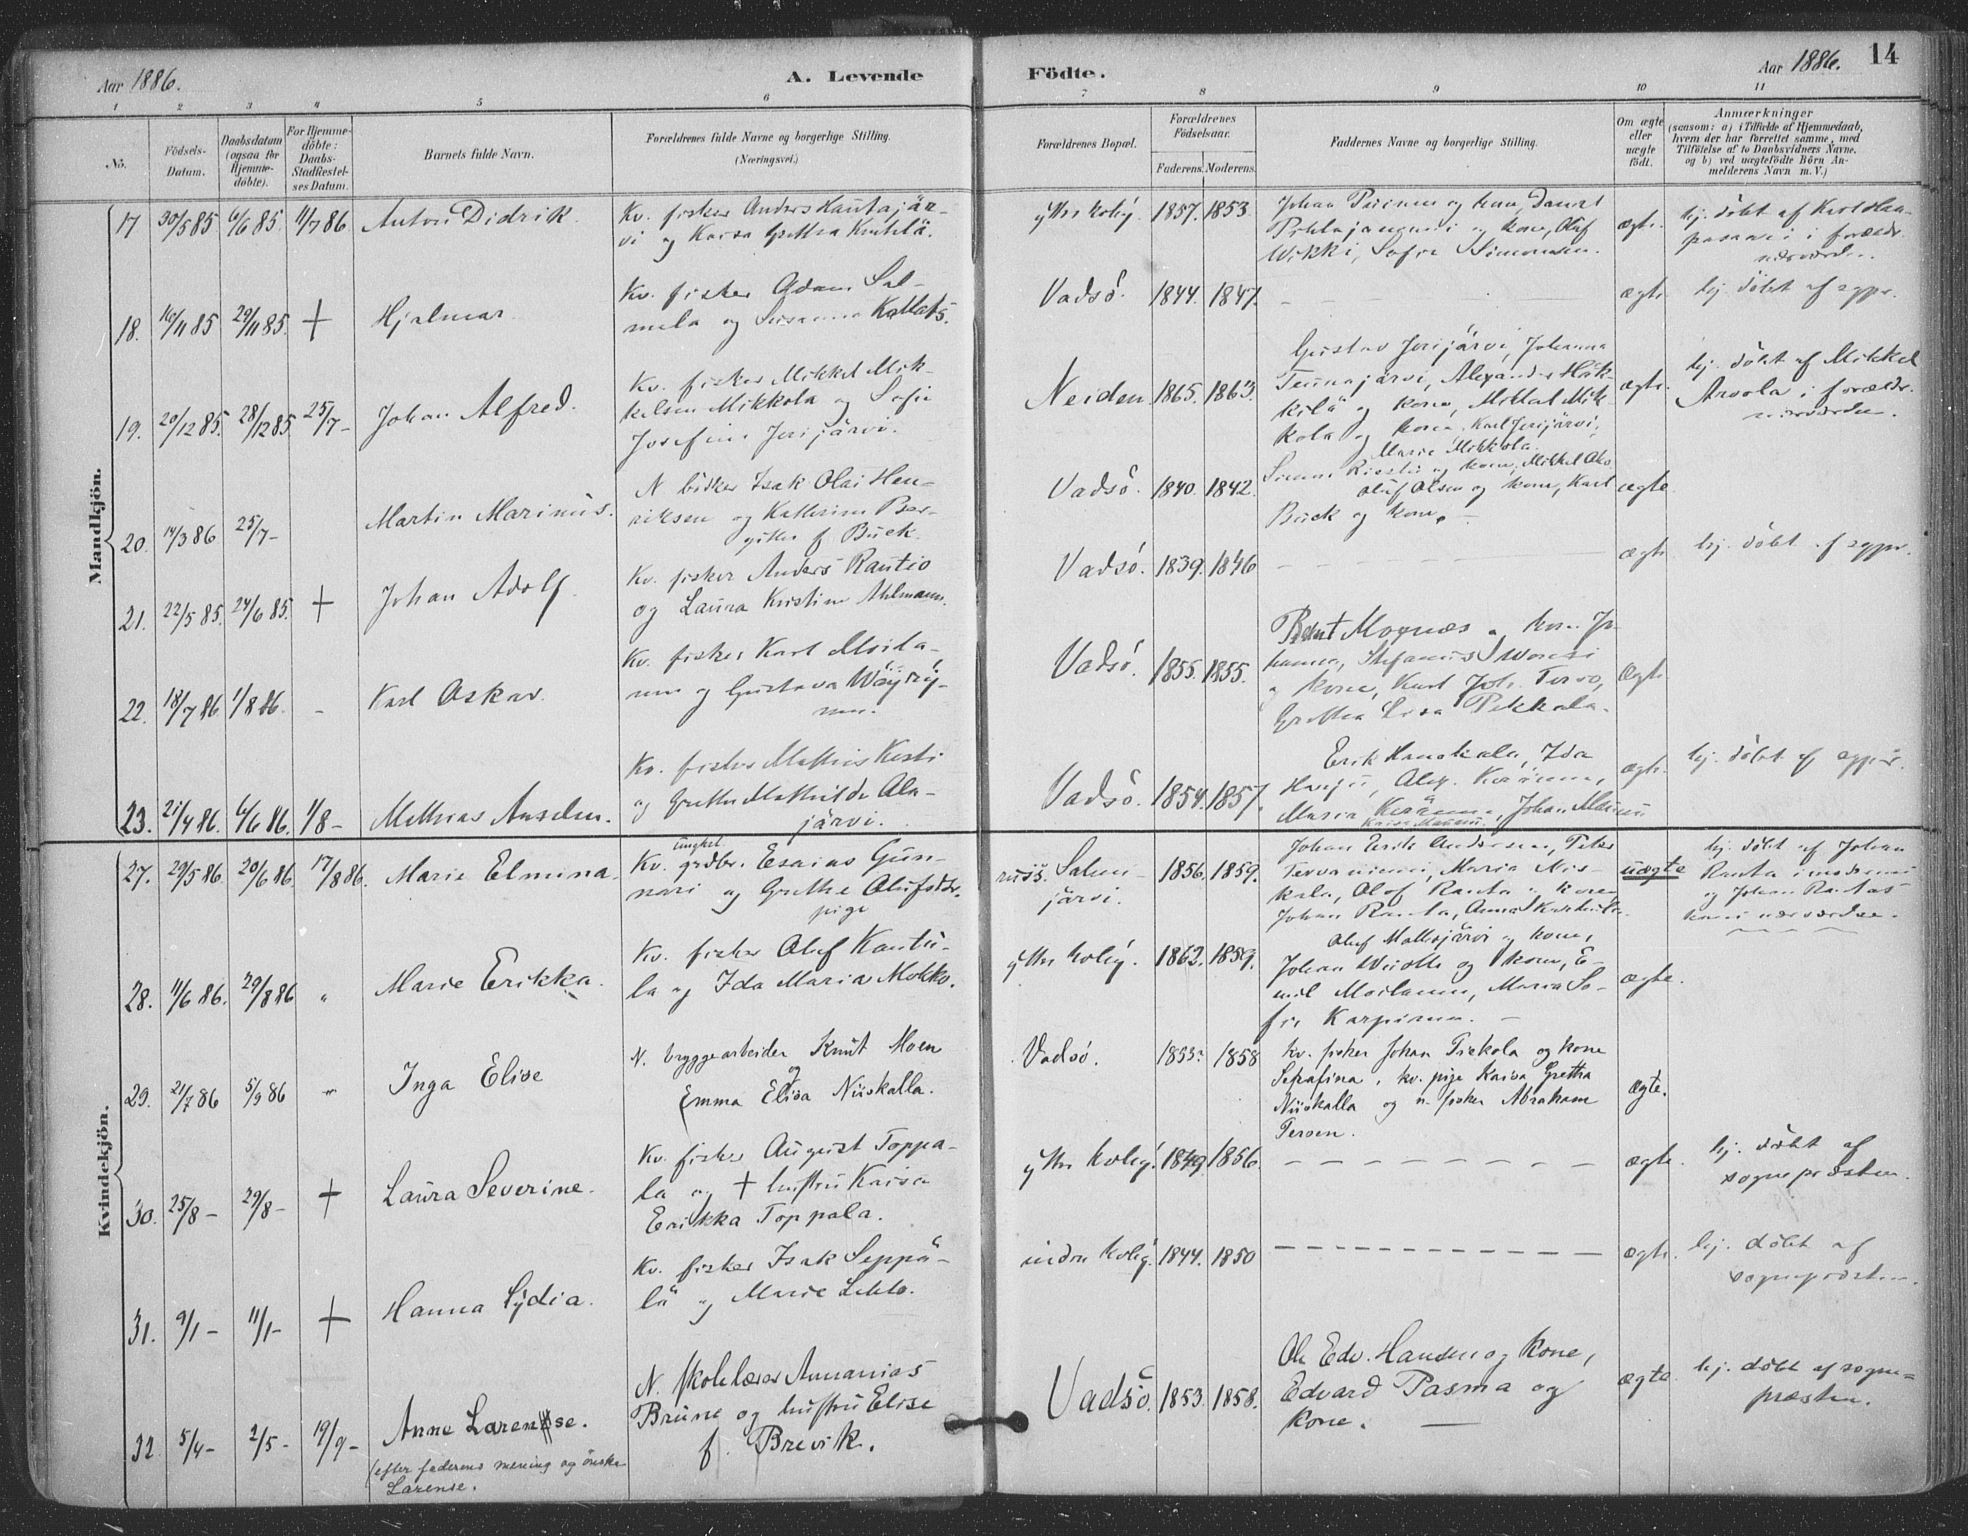 Aar 1886.
A. Levende
Födte.
Aar 1886.
14
1 2 3 4 5 6 7 8 9 10 11
No.
Födsels-
Datum.
Daabsdatum
(ogsaa for
Hjemme-
döbte).
For Hjemme-
döbte:
Daabs-
Stadfæstel-
ses Datum.
Barnets fulde Navn.
Forældrenes fulde Navne og borgerlige Stilling.
(Næringsvei.)
Forældrenes Bopæl.
Forældrenes
Födselsaar.
Faderens. Moderens.
Faddernes Navne og borgerlige Stilling.
Om ægte
eller
uægte
födt.
Anmærkninger
(saasom: a) i Tilfælde af Hjemmedaab,
hvem der har forrettet samme, med
Tilföielse af to Daabsvidners Navne.
og b) ved uægtefödte Börn An-
melderens Navn m. V.)
Mandkjön.
17 30/5 85 6/6 85. 11/7 86 Anton Didrik
Kv. fisker Anders Kautajär-
vi og Kaisa Grettha
ytter kobig. 1857. 1853.
Johan og kone,
og kone, Oluf
Wikki, Sofie Simonsen.
ægte.
hj. döbt af Karl
i forældr.
18. 16/11 85 29/11 85. + Hjalmar
Kv. fisker Adam Sal-
mela og Susanna
Vadsö. 1844. 1847.
ægte. hj. döbt af sgpr.
19. 20/12 85. 28/12 85 25/7 - Johan Alfred.
Kv. fisker Mikkel Mik-
kelsen Mikkola og Sofie
Josefine Jerijärvi.
Neiden 1865. 1863.
Gustav Jerijärvi, Johanna
Teunajärvi, Alexander Hök-
kilä og kone, Mikkel Mik-
kola og kone, Karl Jerijärvi,
Marie Mikkola.
ægte.
hj. döbt af Mikkel
Arvola i forældr.
nærværelse.
20. 14/3 86 25/7 - Martin Marinus.
N fisker Isak Olai Hen-
riksen og Katherine Ber-
gitte f. Buck.
Vadsö. 1840. 1842.
Simon og kone, Mikkel
Oluf Olsen og kone, Karl
Buck og kone. -
ægte
21. 22/5 85. 24/6 85. + Johan Adolf
Kv. fisker Anders Rautio
og Laura Kristine Ahlmann.
Vadsö. 1839. 1846
ægte. hj. döbt af sgpr.
22. 18/7 86 1/8 86. - Karl Oskar.
Kv. fisker Karl Moila-
nen og Gustava Wäyry-
nen.
Vadsö. 1855. 1855.
Bernt Mognæs og kone Jo-
hanna, Stefanus
og kone, Karl Joh. Tervo,
Grettha Lisa Pekkala.
ægte
23. 21/4 86. 6/6 86. 1/8 - Mathias Anselm.
Kv. fisker Mathis Kesti
og Grethe Mathilde Ala-
järvi.
Vadsö. 1854. 1857.
Erik Hanskala, Ida
Harju, Alex. Keränen,
Maria Keränen, Johan
ægte. hj. döbt af sgpr.
Kvindekjön.
27. 29/5 86 20/6 86 17/8 86. Marie Elmina.
ungkrl.
Kv. grdbr. Esaias Gun-
nari og Grethe Olufsdtr.
pige
russ. Salm-
järvi.
1856. 1859.
Johan Erik Andersen,
Tervaniemi, Maria Nis-
kala, Olof Ranta og kone
Johan Ranta, Anna
uægte
hj. döbt af Johan
Ranta i moderens
og Johan Rantas
kones nærværelse.
28. 11/6 86. 29/8 86 " Marie Erikka.
Kv. fisker Oluf Kantu-
la og Ida Maria Mokko.
ytter kobig. 1862. 1859.
Oluf Mattojärvi og kone,
Johan og kone, E-
mil Moilanen, Maria So-
fie Karpinen. -
ægte.
29. 2/7 86 5/9 86 " Inga Elise
N. bryggearbeider Knut Moen
og
Emma Elisa Niiskalla.
Vadsö. 1853. 1858
kv. fisker Johan Piekola og kone
Serafina, kv. pige Kaisa Gretha
Niiskalla og n. fisker Abraham
Tervon.
ægte.
30. 25/8 - 29/8 - + Laura Severine.
Kv. fisker August Toppa-
la og + hustru Kaisa
Erikka Toppala.
ytter kobig. 1849. 1856.
ægte. hj. döbt af
sognepræsten.
31. 9/1 - 11/1 - + Hanna Lydia.
Kv. fisker Isak Seppä-
lä og Marie Lehto.
indre kobig. 1844. 1850
ægte. hj. döbt af
sognepræsten.
32 5/4 - 2/5 - 19/9 - Anne Larense.
(efter faderens mening og önske
Larense.
N. skolelærer Annanias
Brune og hustru Elise
f. Brevik.
Vadsö. 1853. 1858.
Ole Edv. Hansen og kone,
Edvard Pasma og
kone.
ægte. hj. döbt af sogne-
præsten.